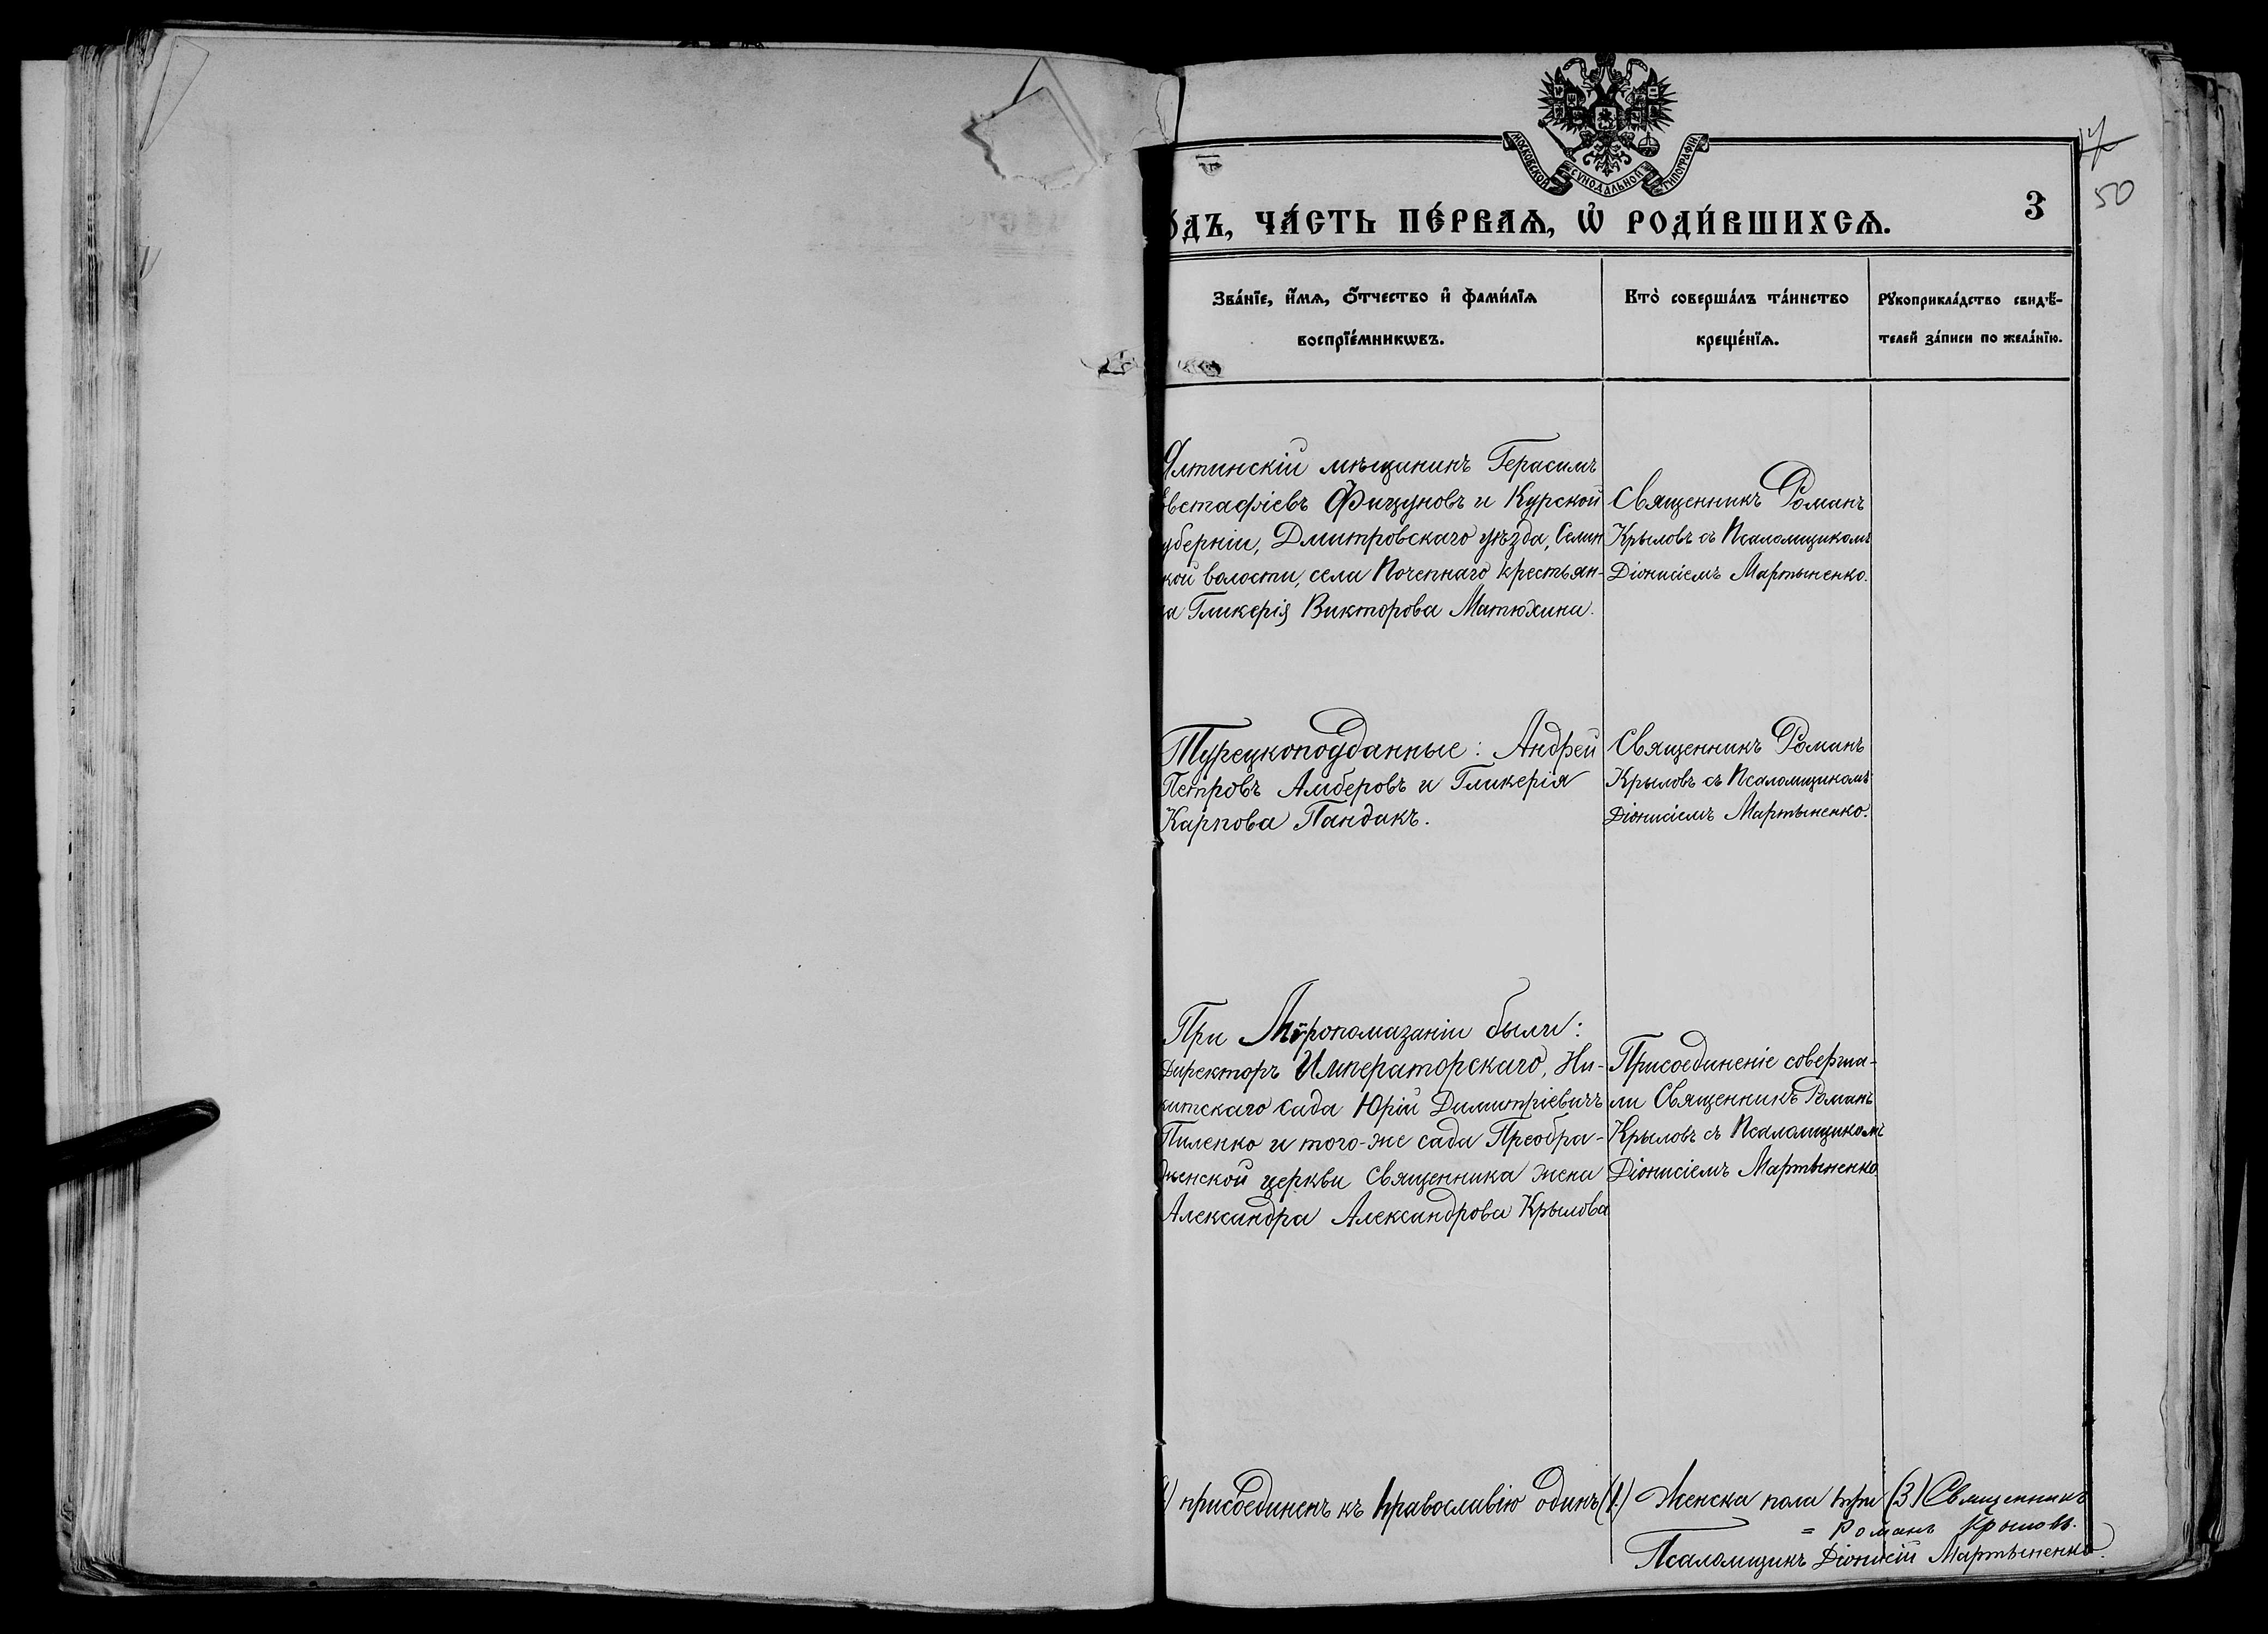 МОСКОВСКОЙ СѴНОДАЛЬНОЙ ТИПОГРАФІИ
50
3
о́дъ, ча́сть пе́рваѧ, ѡ҆ роди́вшихсѧ.
Зва́нїе, и҆́мѧ, ѻ҆́тчество и҆ фами́лїѧ
воспрїе́мникѡвъ.
Кто̀ соверша́лъ та́инство
креще́нїѧ.
Рꙋкоприкла́дство свидѣ́-
телей за́писи по жела́нїю.
Ялтинскій мѣщанинъ Герасимъ
Евстафіевъ Фицуновъ и Курской
уберніи, Дмитровскаго уѣзда, Селин
кой волости, села Почепнаго крестьян-
ка Гликерія Викторова Матюхина.
Священникъ Романъ
Крыловъ съ Псаломщикомъ
Діонисіемъ Мартыненко.
Турецкоподданные: Андрей
Петровъ Амберовъ и Гликерія
Карпова Пандакъ.
Священникъ Романъ
Крыловъ съ Псаломщикомъ
Діонисіемъ Мартыненко.
При Мѵропомазаніи были:
Директоръ Императорскаго, Ни-
китскаго сада Юрій Димитріевичъ
Пиленко и того-же сада Преобра-
женской церкви Священника жена
Александра Александрова Крылова
Присоединеніе соверша-
ли Священникъ Романъ
Крыловъ съ Псаломщикомъ
Діонисіемъ Мартыненко
) присоединенъ къ православію одинъ (1.) Женска пола три (3) Священникъ
= Романъ Крыловъ.
Псаломщикъ Діонисій Мартыненко.